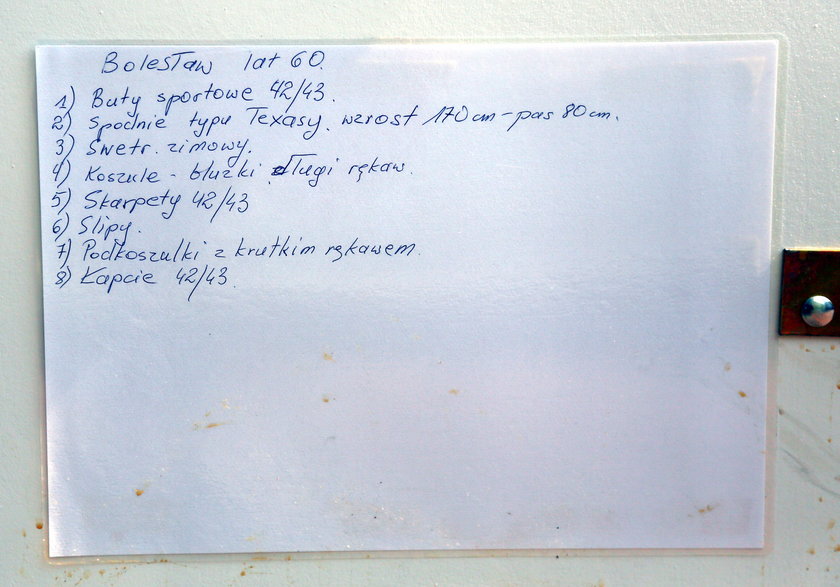 Bolesław lat 60.
1) Buty sportowe 42/43.
2) spodnie typu Texasy. wzrost 170 cm - pas 80 cm.
3) Swetr. zimowy.
4) Koszule - bluzki długi rękaw.
5) Skarpety 42/43
6) Slipy.
7) Podkoszulki z krutkim rękawem.
8) Kapcie 42/43.